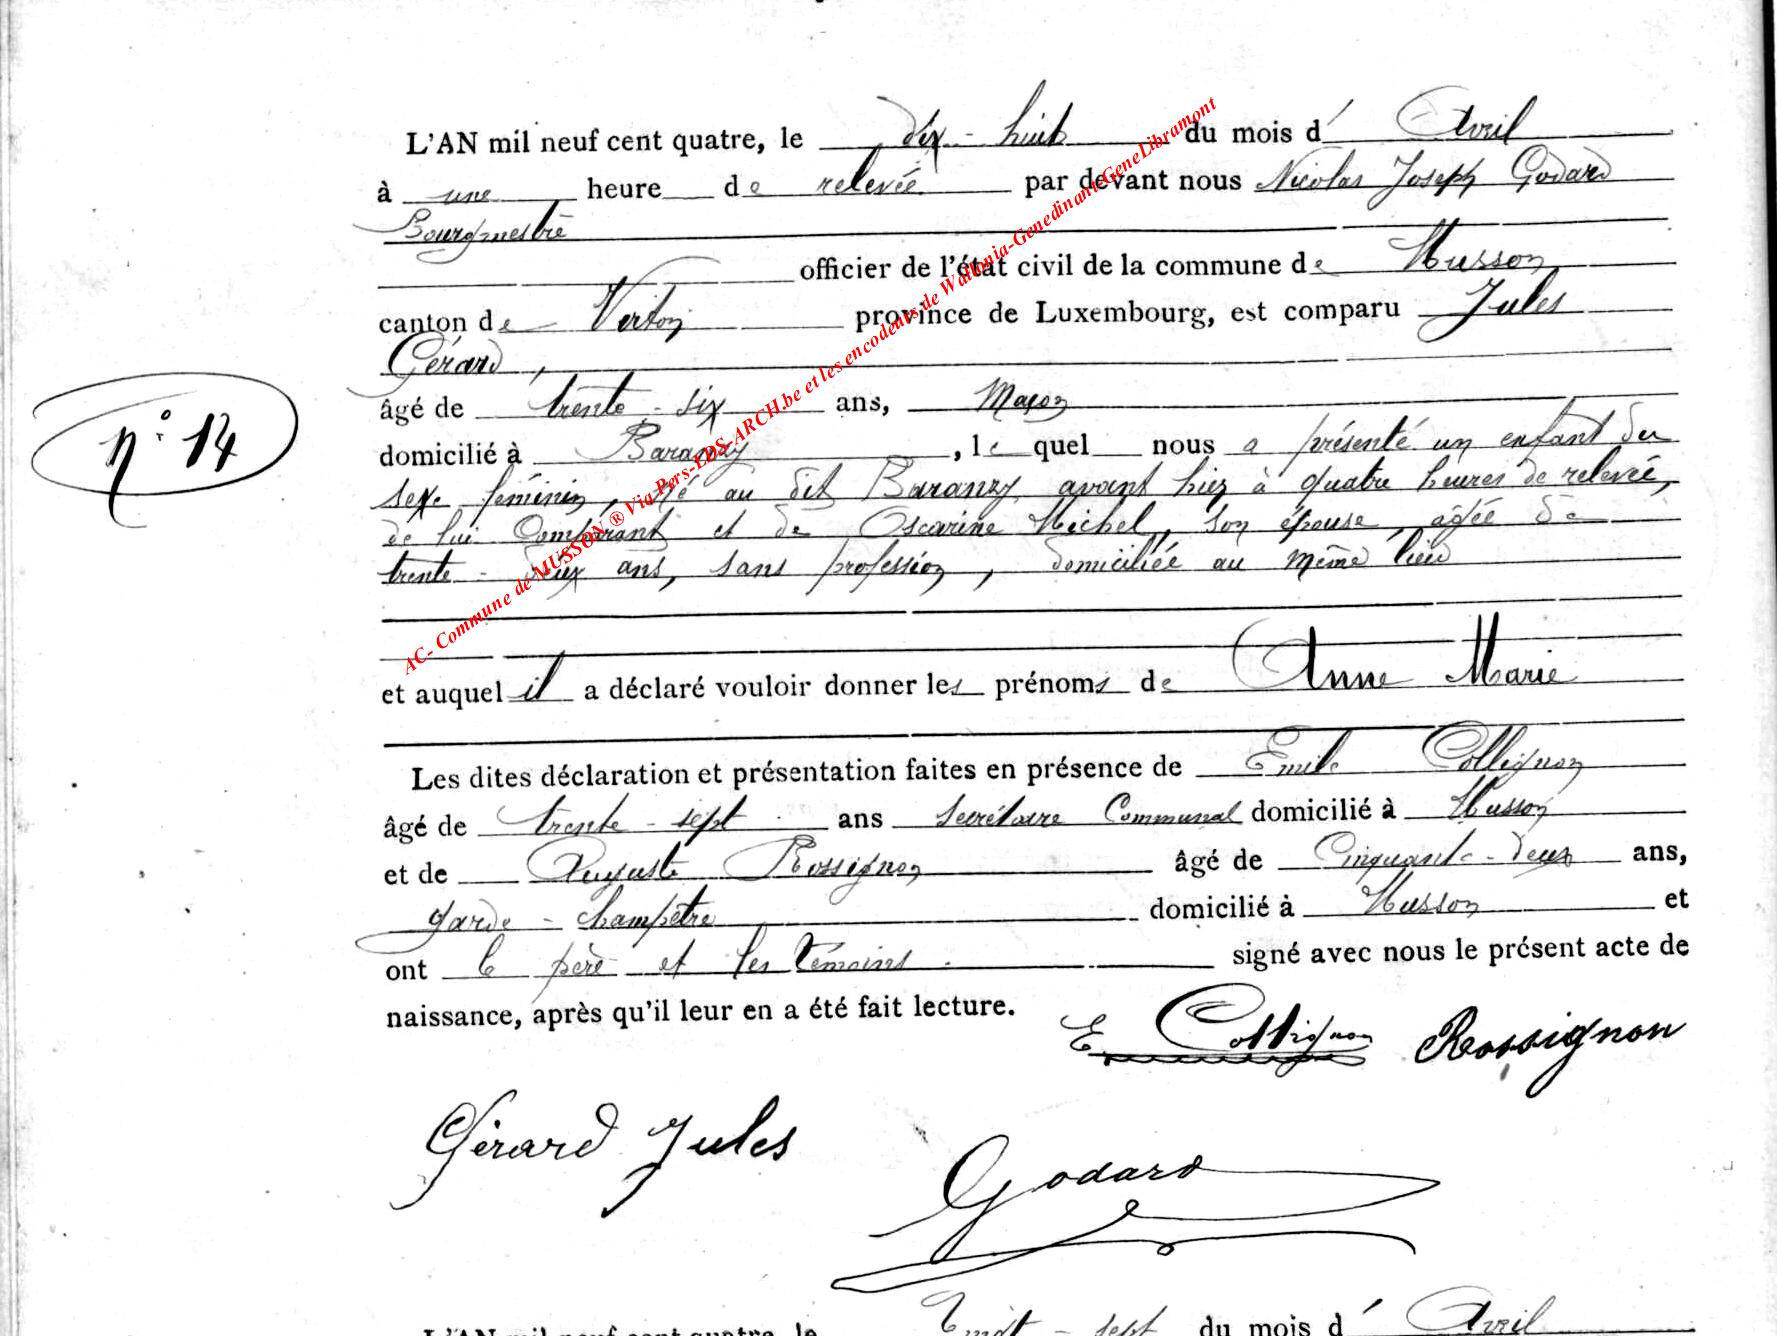 L'AN mil neuf cent quatre, le dix-huit du mois d'Avril
à une heure de relevée par devant nous Nicolas Joseph Godard
Bourgmestre
officier de l'état civil de la commune de Musson
canton de Virton province de Luxembourg, est comparu Jules
Gérard,
âgé de trente-six ans, Maçon
domicilié à Baranzy, lequel nous a présenté un enfant du
sexe féminin, né au dit Baranzy avant hier à quatre heures de relevée,
de lui Comparant et de Oscarine Michel, son épouse, âgée de
trente-deux ans, sans profession, domiciliée au même lieu
et auquel il a déclaré vouloir donner les prénoms de Anne Marie
Les dites déclaration et présentation faites en présence de Emile Collignon
âgé de trente-sept ans Secrétaire Communal domicilié à Musson
et de Auguste Rossignon âgé de Cinquante-deux ans,
garde-champêtre domicilié à Musson et
ont le père et les témoins signé avec nous le présent acte de
naissance, après qu'il leur en a été fait lecture.
N° 14
E Collignon Rossignon
Gérard Jules
Godard
L'AN mil neuf cent quatre, le Vingt-sept du mois d'Avril
AC- Commune de MUSSON ® Via Pers-EDS-ARCH.be et les encodeurs de Wallonia-Genedinant-GeneLibramont